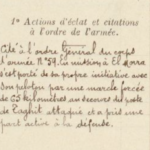 1º Actions d'éclat et citations
à l'ordre de l'armée.
Cité à l'ordre Général du corps
d'armée Nº 54. En mission à El
s'est porté de sa propre initiative avec
son peloton par une marche forcée
de 65 kilomètres au secours du poste
de Taghit attaqué et a pris une
part active à la défense.